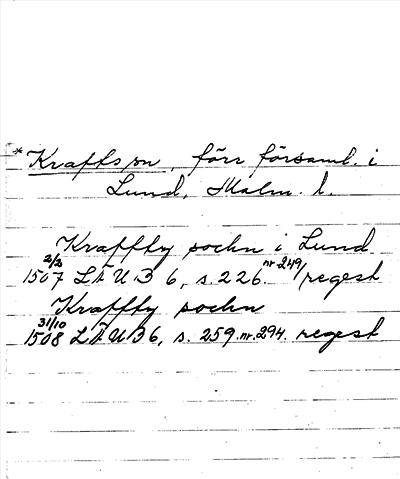 * Krafts sn, förr församl. i
Lund, Malm. l.
Kraffthy sochn i Lund
2/2 1507 LÄUB 6, s. 226. nr 249/ regest
Kraffthy sochn
31/10 1508 LÄUB 6, s. 259. nr. 294. regest